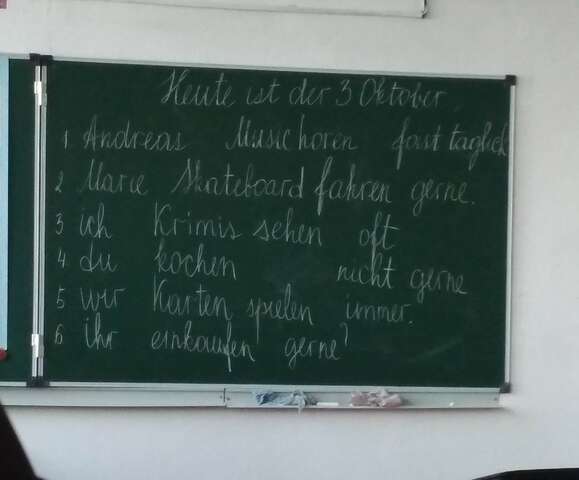 Heute ist der 3 Oktober.
1 Andreas Music horen fast taglich
2 Marie Skateboard fahren gerne.
3 ich Krimis sehen oft
4 du kochen nicht gerne
5 wir Karten spielen immer.
6 ihr einkaufen gerne?